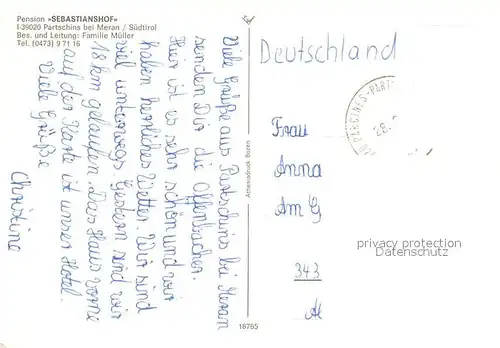 Pension »SEBASTIANSHOF«
I-39020 Partschins bei Meran / Südtirol
Bes. und Leitung: Familie Müller
Tel. (0473) 9 71 16
Viele Grüße aus Partschins bei Meran
senden Dir die Offenbacher.
Hier ist es sehr schön und wir
haben herrliches Wetter. Wir sind
viel unterwegs. Gestern sind wir
18 km gelaufen. Das Haus vorne
auf der Karte ist unser Hotel.
Viele Grüße
Christine
Athesiadruck Bozen
18765
Deutschland
PARCINES - PART
28.
Frau
Anna
Am G
343
privacy protection
Datenschutz